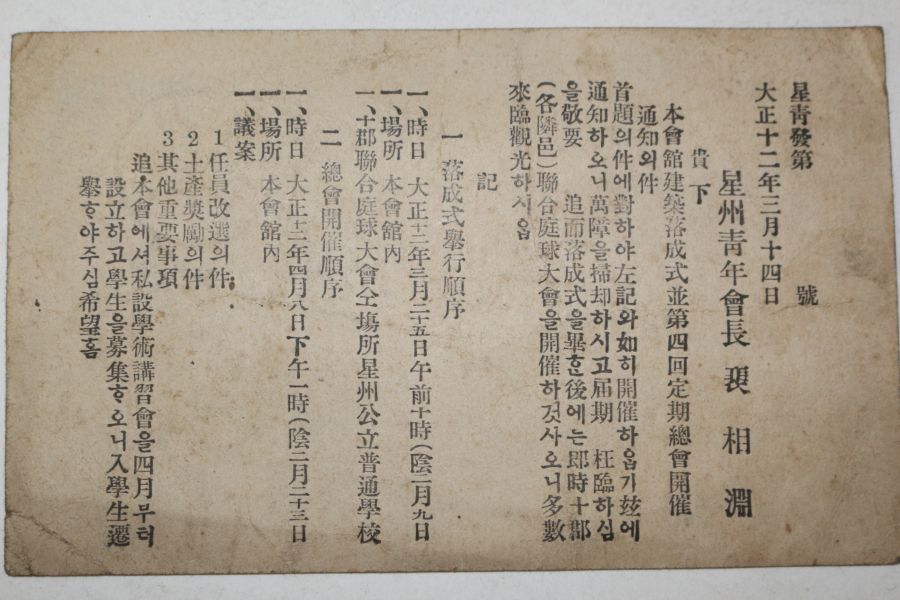 星靑發第　　　號
大正十二年三月十四日
星州靑年會長 裵 相 淵
貴下
本會舘建築落成式並第四回定期總會開催
通知의件
首題의件에對하야左記와如히開催하옵기玆에
通知하오니萬障을掃却하시고届期 枉臨하심
을敬要 追而落成式을畢ᄒᆞᆫ後에는即時十郡
(各隣邑)聯合庭球大會을開催하것사오니多數
來臨觀光하시옵
記
一 落成式擧行順序
一、時日 大正十二年三月二十五日午前十時(陰二月九日
一、場所 本會舘內
一、十郡聯合庭球大會仝塲所星州公立普通學校
二 總會開催順序
一、時日 大正十二年四月八日下午一時(陰二月二十三日
一、場所 本會舘內
一、議案
1 任員改選의件
2 土產奬勵의件
3 其他重要事項
追本會에셔私設學術講習會을四月부터
設立하고學生을募集ᄒᆞ오니入學生遷
擧ᄒᆞ야주심希望홈